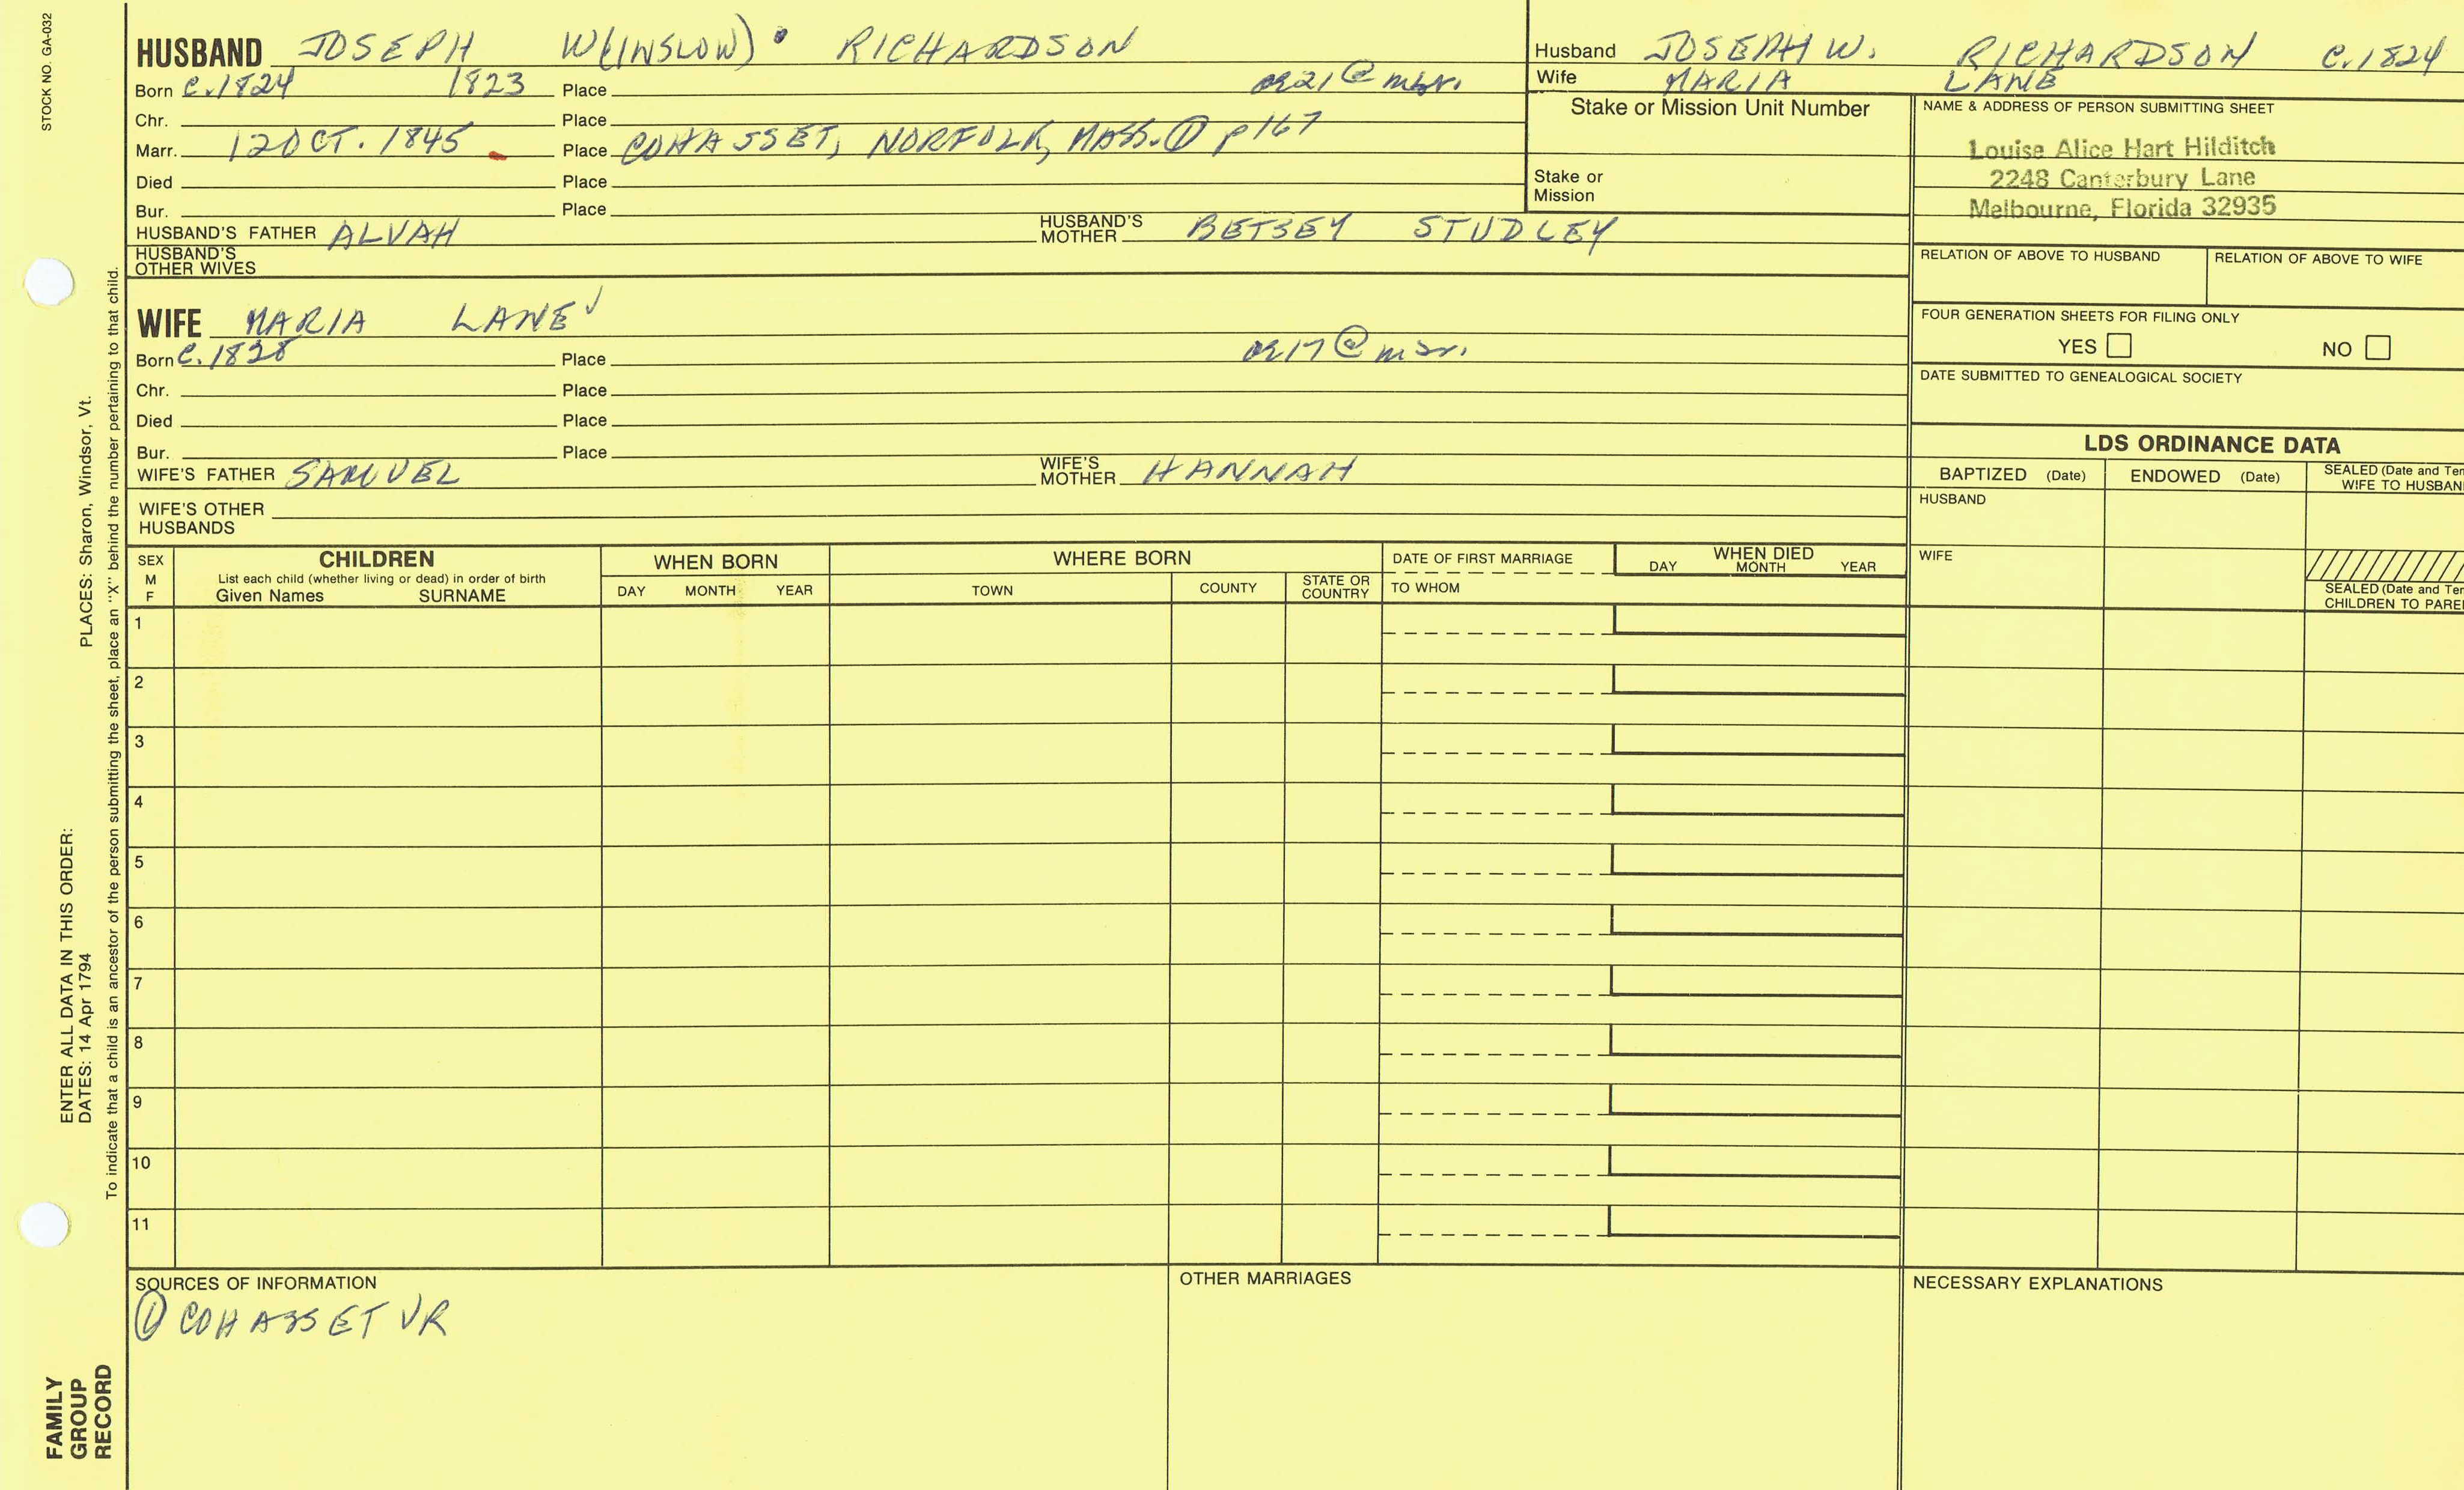 STOCK NO. GA-032
HUSBAND JOSEPH W(INSLOW) RICHARDSON
Born c.1824 1823 Place ae 21 @ mar.
Chr. Place
Marr. 12 OCT. 1845 Place COHASSET, NORFOLK, MASS. ① p 167
Died Place
Bur. Place
HUSBAND'S FATHER ALVAH HUSBAND'S MOTHER BETSEY STUDLEY
HUSBAND'S OTHER WIVES
Husband JOSEPH W. RICHARDSON C.1824
Wife MARIA LANE
Stake or Mission Unit Number
Stake or
Mission
NAME & ADDRESS OF PERSON SUBMITTING SHEET
Louise Alice Hart Hilditch
2248 Canterbury Lane
Melbourne, Florida 32935
RELATION OF ABOVE TO HUSBAND RELATION OF ABOVE TO WIFE
FOUR GENERATION SHEETS FOR FILING ONLY
YES NO
DATE SUBMITTED TO GENEALOGICAL SOCIETY
WIFE MARIA LANE ✓
Born c.1828 Place ae 17 @ mar.
Chr. Place
Died Place
Bur. Place
WIFE'S FATHER SAMUEL WIFE'S MOTHER HANNAH
WIFE'S OTHER
HUSBANDS
LDS ORDINANCE DATA
BAPTIZED (Date) ENDOWED (Date) SEALED (Date and Tem
WIFE TO HUSBAN
HUSBAND
WIFE
SEALED (Date and Tem
CHILDREN TO PARE
SEX
M
F
CHILDREN
List each child (whether living or dead) in order of birth
Given Names SURNAME
WHEN BORN
DAY MONTH YEAR
WHERE BORN
TOWN COUNTY STATE OR COUNTRY
DATE OF FIRST MARRIAGE
TO WHOM
WHEN DIED
DAY MONTH YEAR
1
2
3
4
5
6
7
8
9
10
11
SOURCES OF INFORMATION
① COHASSET VR
OTHER MARRIAGES
NECESSARY EXPLANATIONS
FAMILY
GROUP
RECORD
ENTER ALL DATA IN THIS ORDER:
DATES: 14 Apr 1794 PLACES: Sharon, Windsor, Vt.
To indicate that a child is an ancestor of the person submitting the sheet, place an "X" behind the number pertaining to that child.